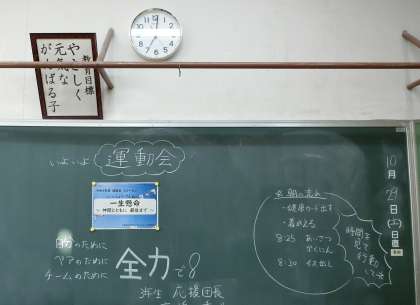 教育目標
やさしく
元気な
がんばる子
いよいよ 運動会
一生懸命
〜仲間とともに 最後まで〜
のために
ペアのために
チームのために
全力で
弥生 応援団長
朝の流れ
・健康カード出す
・着がえる
8:25 あいさつ
かくにん
8:30 イス出し
時間を
見て
行動
10月29日(土)
日直